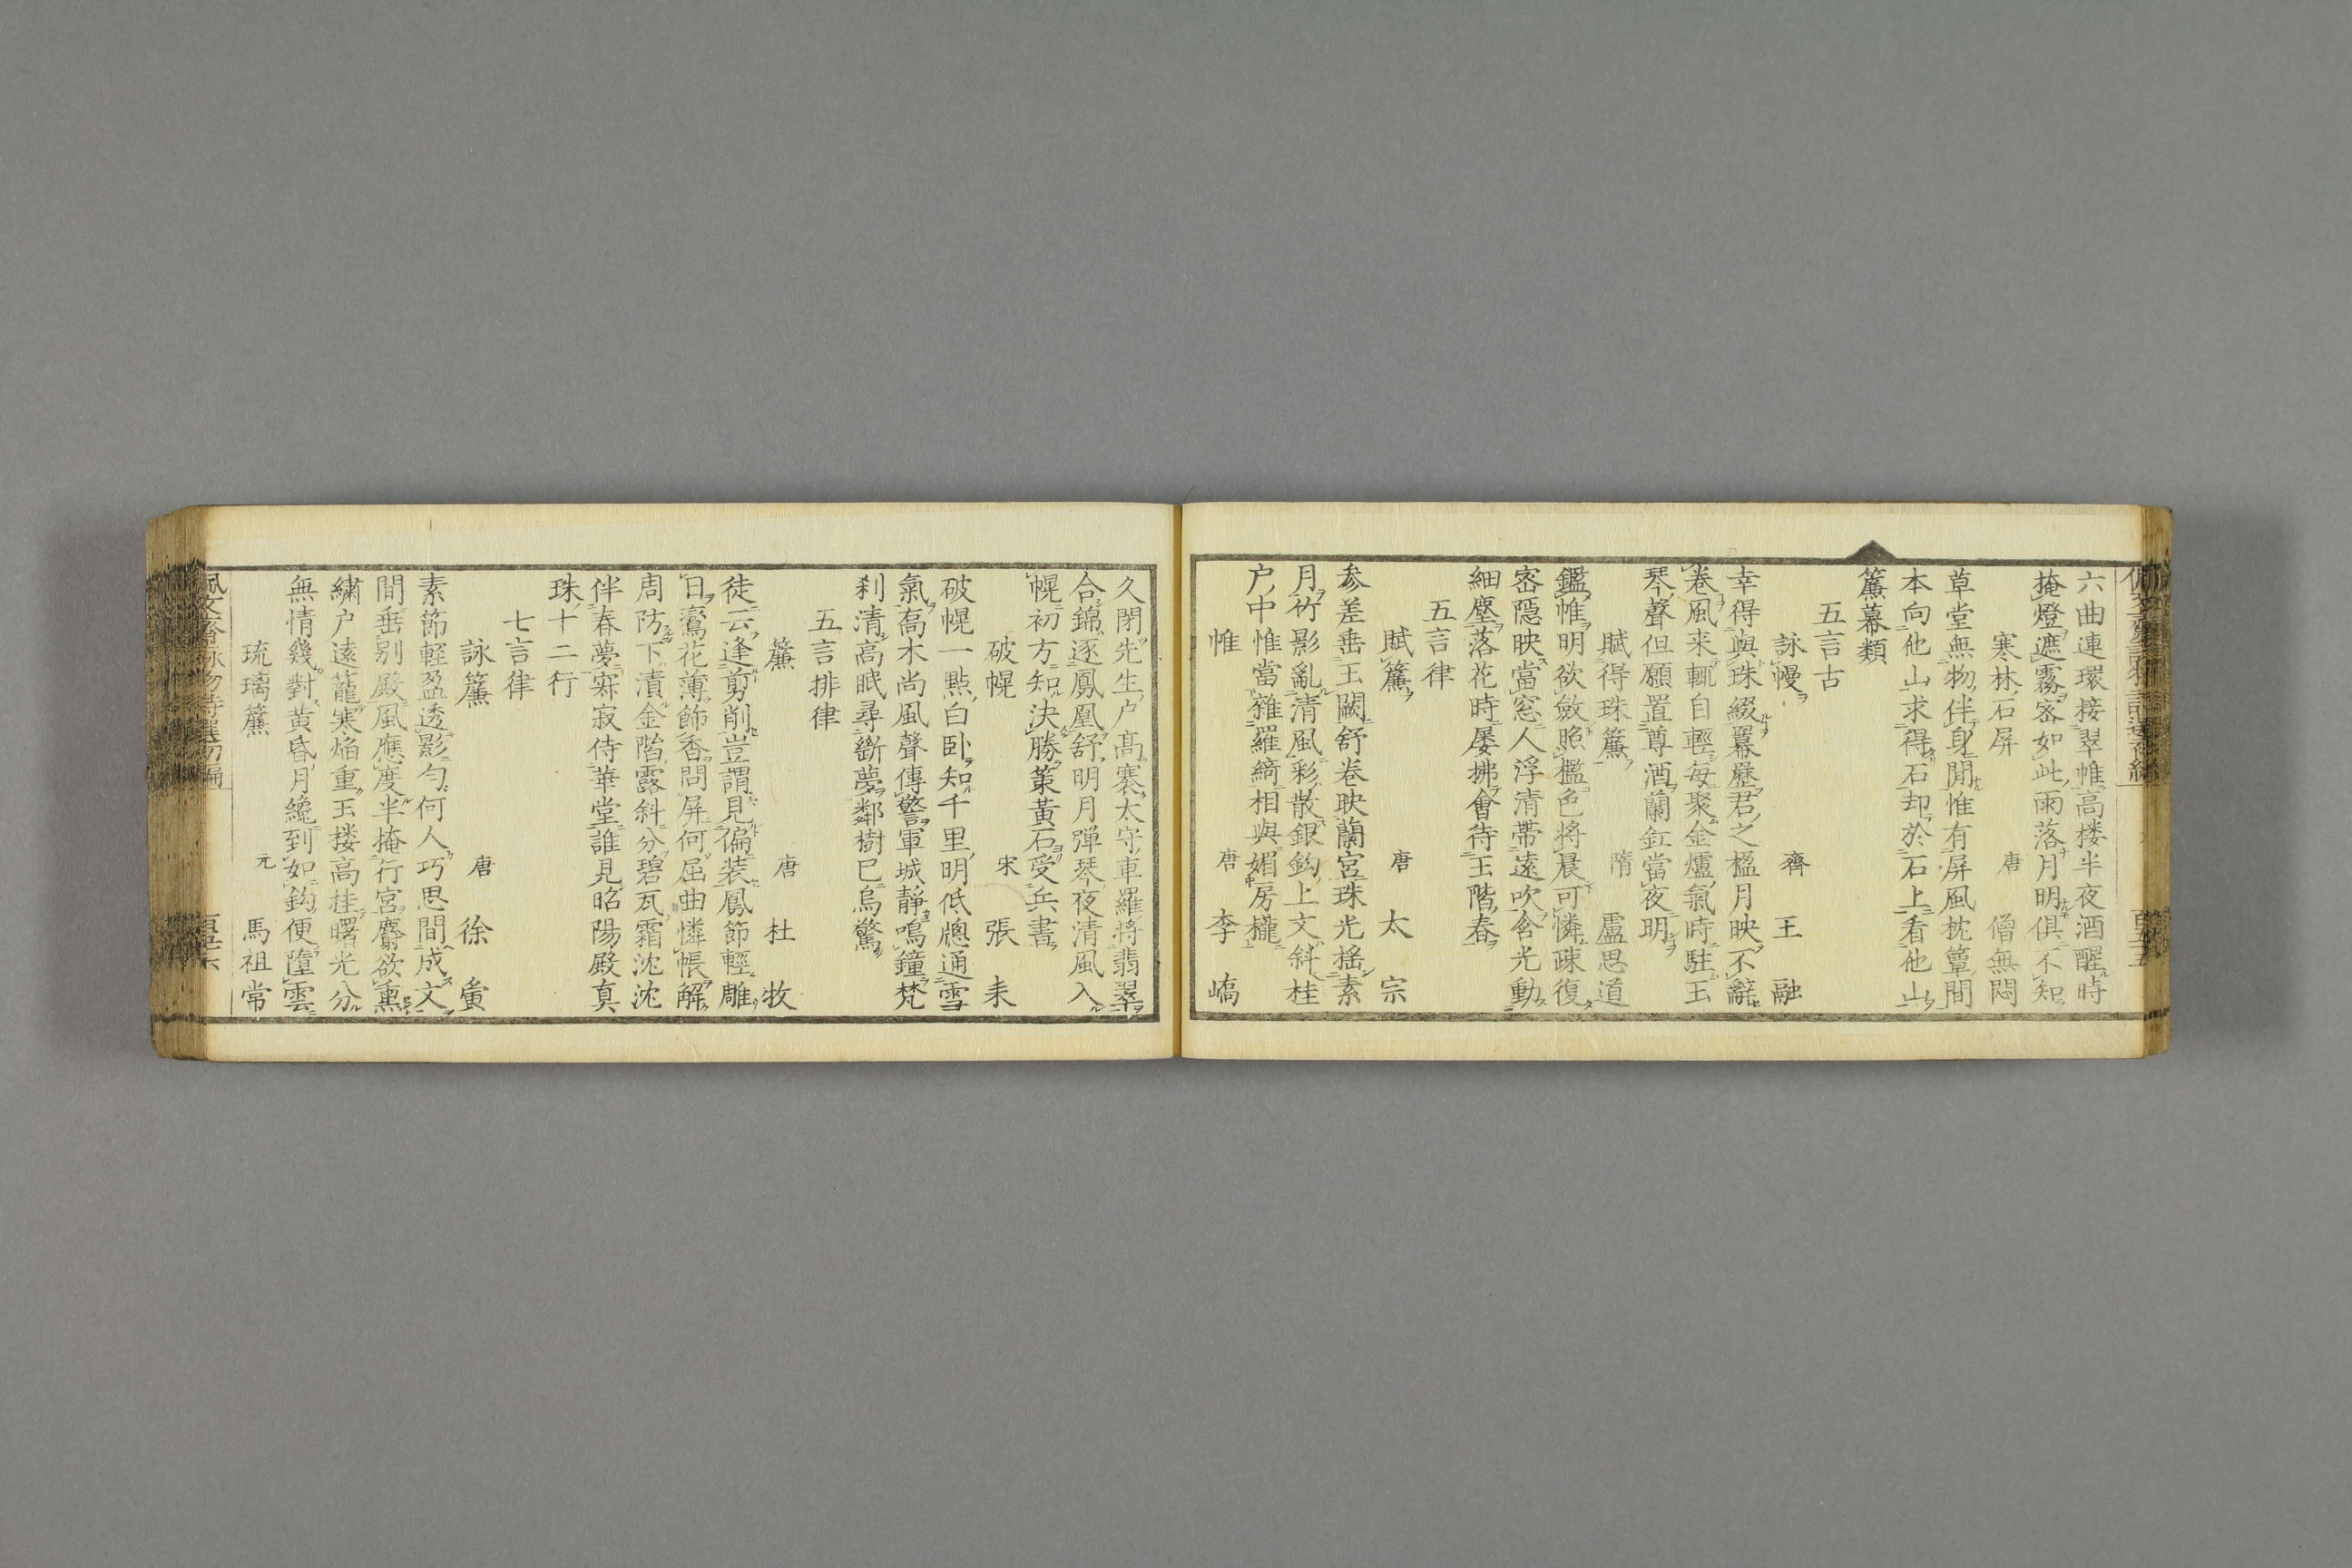 六曲連環接翠帷高楼半夜酒醒時
掩燈遮霧宻如此雨落月明俱不知
寒林石屏 唐 僧無悶
草堂無物伴身閒惟有屏風枕簟間
本向他山求得石却於石上看他山
簾幕類
五言古
詠幔 齊 王融
幸得與珠綴羃歷君之楹月映不辭
卷風来輒自輕每聚金爐氣時駐玉
琴聲但願置尊酒蘭釭當夜明
賦得珠簾 隋 盧思道
鑑帷明欲斂照檻色将晨可憐疎復
宻隠映當窓人浮清帯遠吹含光動
細塵落花時屡拂會待玉階春
五言律
賦簾 唐 太宗
参差垂玉闕舒卷映蘭宮珠光揺素
月竹影亂清風彩散銀鈎上文斜桂
户中惟當雜羅綺相與媚房櫳
帷 唐 李嶠
久閉先生户高褰太守車羅將翡翠
合錦逐鳳凰舒明月弾琴夜清風入
幌初方知決勝策黃石受兵書
破幌 宋 張耒
破幌一點白卧知千里明低牕通雪
氣高木尚風聲傳警軍城靜鳴鐘梵
刹清高眠尋斷夢鄰樹已烏驚
五言排律
簾 唐 杜牧
徒云逢剪削豈謂見偏装鳳節輕雕
日鸞花薄飾香問屏何屈曲憐帳解
周防下漬金階露斜分碧瓦霜沈沈
伴春夢寂寂侍華堂誰見昭陽殿真
珠十二行
七言律
詠簾 唐 徐夤
素節輕盈透影勻何人巧思間成文
間垂别殿風應度半掩行宮麝欲熏
繍户遠籠寒焔重玉楼高挂曙光分
無情幾對黄昏月纔到如鈎便墮雲
琉璃簾 元 馬祖常